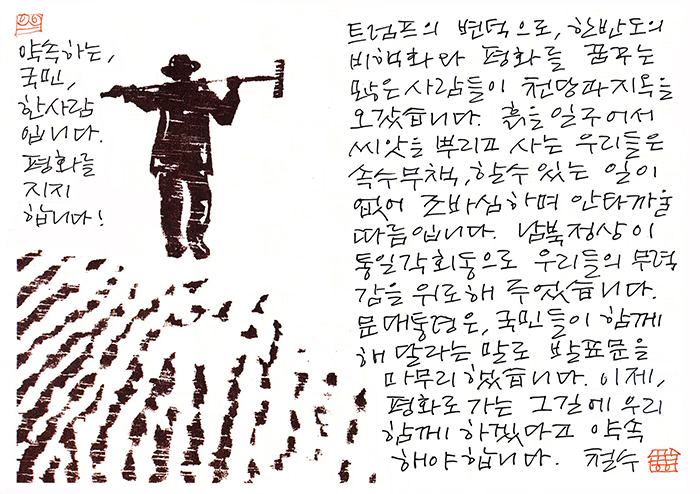 약속하는,
국민,
한사람
입니다.
평화를
지지
합니다!
트럼프의 변덕으로, 한반도의
비핵화와 평화를 꿈꾸는
많은 사람들이 천당과 지옥을
오갔습니다. 흙을 일구어서
씨앗을 뿌리고 사는 우리들은
속수무책, 할 수 있는 일이
없어 조바심하며 안타까울
따름입니다. 남북정상이
통일각 회동으로 우리들의 무력
감을 위로해 주었습니다.
문대통령은, 국민들이 함께
해 달라는 말로 발표문을
마무리 했습니다. 이제,
평화로 가는 그길에 우리
함께 하겠다고 약속
해야 합니다. 철수